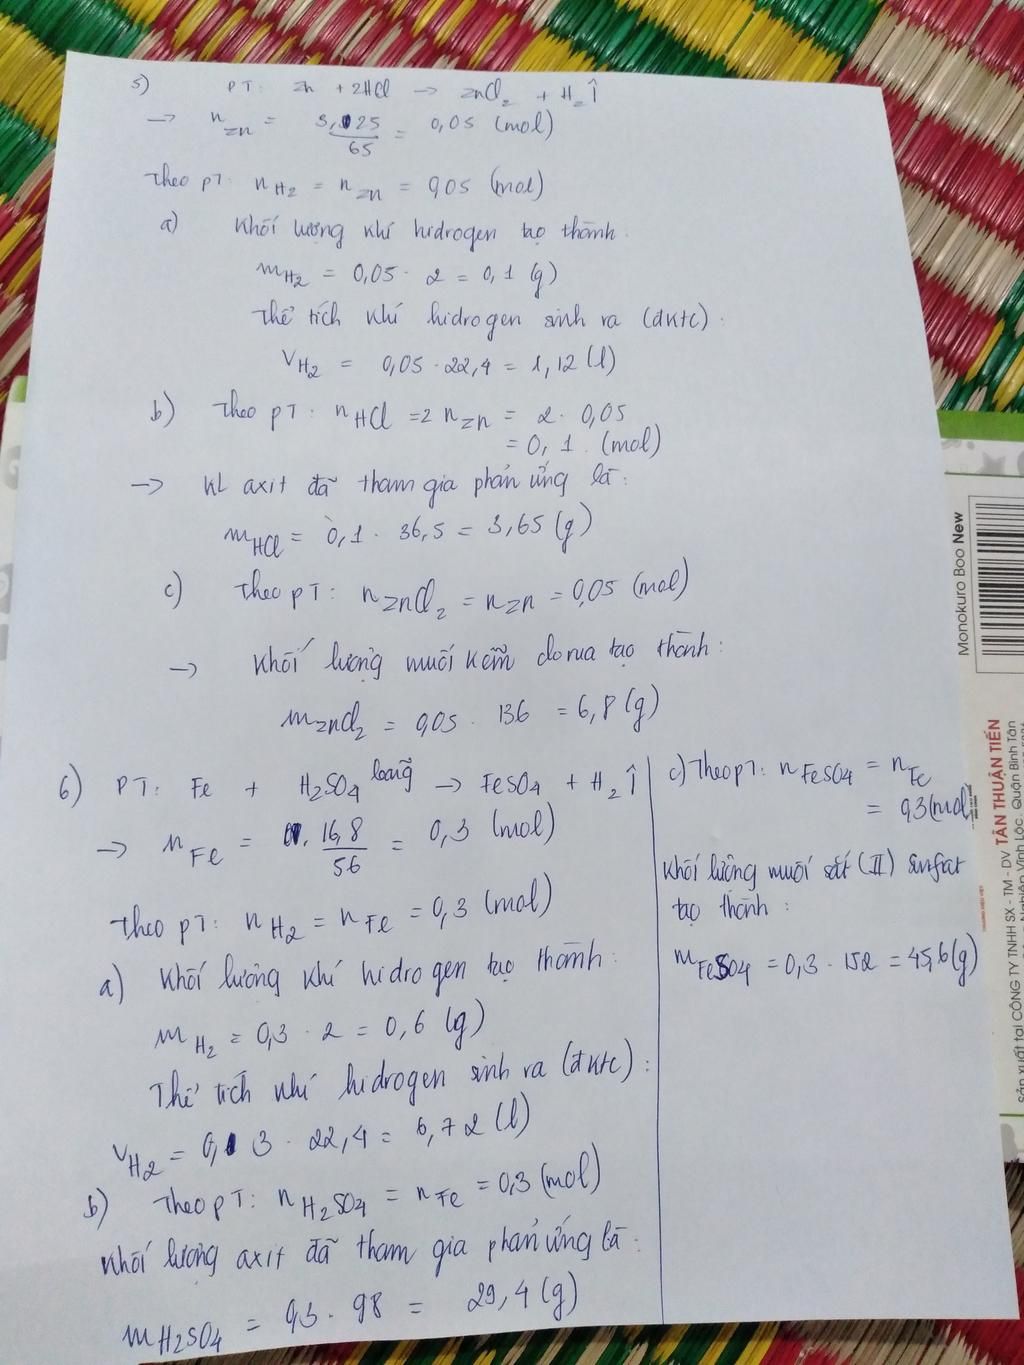 5) PT: Zn + 2HCl → ZnCl₂ + H₂↑
→ n_Zn = 3,25/65 = 0,05 (mol)
Theo PT: n_H₂ = n_Zn = 0,05 (mol)
a) Khối lượng khí hidrogen tạo thành:
m_H₂ = 0,05 . 2 = 0,1 (g)
Thể tích khí hidrogen sinh ra (đktc):
V_H₂ = 0,05 . 22,4 = 1,12 (l)
b) Theo PT: n_HCl = 2 n_Zn = 2 . 0,05
= 0,1 (mol)
→ KL axit đã tham gia phản ứng là:
m_HCl = 0,1 . 36,5 = 3,65 (g)
c) Theo PT: n_ZnCl₂ = n_Zn = 0,05 (mol)
→ Khối lượng muối kẽm clorua tạo thành:
m_ZnCl₂ = 0,05 . 136 = 6,8 (g)
6) PT: Fe + H₂SO₄ loãng → FeSO₄ + H₂↑
→ n_Fe = 16,8/56 = 0,3 (mol)
Theo PT: n_H₂ = n_Fe = 0,3 (mol)
a) Khối lượng khí hidrogen tạo thành:
m_H₂ = 0,3 . 2 = 0,6 (g)
Thể tích khí hidrogen sinh ra (đktc):
V_H₂ = 0,3 . 22,4 = 6,72 (l)
b) Theo PT: n_H₂SO₄ = n_Fe = 0,3 (mol)
Khối lượng axit đã tham gia phản ứng là:
m_H₂SO₄ = 0,3 . 98 = 29,4 (g)
c) Theo PT: n_FeSO₄ = n_Fe
= 0,3 (mol)
Khối lượng muối sắt (II) sunfat
tạo thành:
m_FeSO₄ = 0,3 . 152 = 45,6 (g)
Monokuro Boo New
TÂN THUẬN TIẾN
Sản xuất tại CÔNG TY TNHH SX - TM - DV
Vĩnh Lộc, Quận Bình Tân